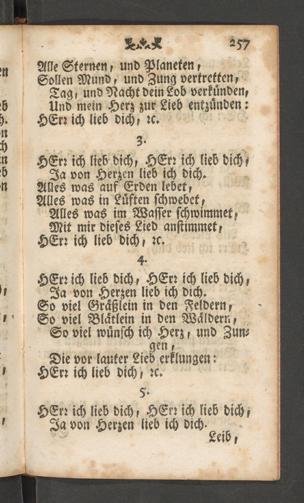 257
Alle Sternen, und Planeten,
Sollen Mund, und Zung vertretten,
Tag, und Nacht dein Lob verkünden,
Und mein Herz zur Lieb entzünden:
HErr ich lieb dich, ꝛc.
3.
HErr ich lieb dich, HErr ich lieb dich,
Ja von Herzen lieb ich dich.
Alles was auf Erden lebet,
Alles was in Lüften schwebet,
Alles was im Wasser schwimmet,
Mit mir dieses Lied anstimmet,
HErr ich lieb dich, ꝛc.
4.
HErr ich lieb dich, HErr ich lieb dich,
Ja von Herzen lieb ich dich.
So viel Gräßlein in den Feldern,
So viel Blätlein in den Wäldern,
So viel wünsch ich Herz, und Zun-
gen,
Die vor lauter Lieb erklungen:
HErr ich lieb dich, ꝛc.
5.
HErr ich lieb dich, HErr ich lieb dich,
Ja von Herzen lieb ich dich.
Leib,